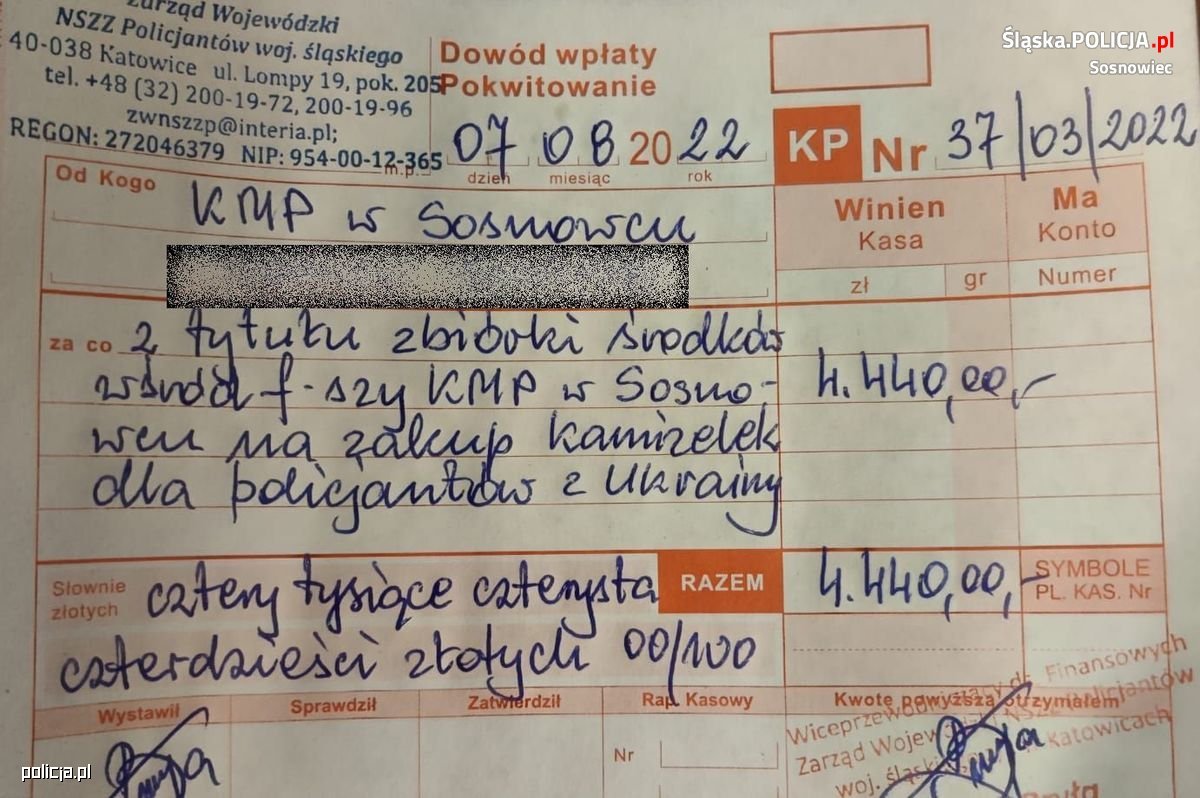 Zarząd Wojewódzki
NSZZ Policjantów woj. śląskiego
40-038 Katowice ul. Lompy 19, pok. 205
tel. +48 (32) 200-19-72, 200-19-96
zwnszzp@interia.pl;
REGON: 272046379 NIP: 954-00-12-365
m.p.
Dowód wpłaty
Pokwitowanie
07 08 2022
dzień miesiąc rok
KP Nr 37/03/2022
Śląska.POLICJA.pl
Sosnowiec
Od Kogo
KMP w Sosnowcu
Winien
Kasa
Ma
Konto
zł gr Numer
za co z tytułu zbiórki środków
wśród f-szy KMP w Sosno- 4.440,00,-
wcu na zakup kamizelek
dla policjantów z Ukrainy
Słownie
złotych
cztery tysiące czterysta
czterdzieści złotych 00/100
RAZEM 4.440,00,-
SYMBOLE
PL. KAS. Nr
Wystawił Sprawdził Zatwierdził Rap. Kasowy Kwotę powyższą otrzymałem
Nr
Wiceprzewodniczący ds. Finansowych
Zarząd Wojewódzki NSZZ Policjantów
woj. śląskiego w Katowicach
policja.pl